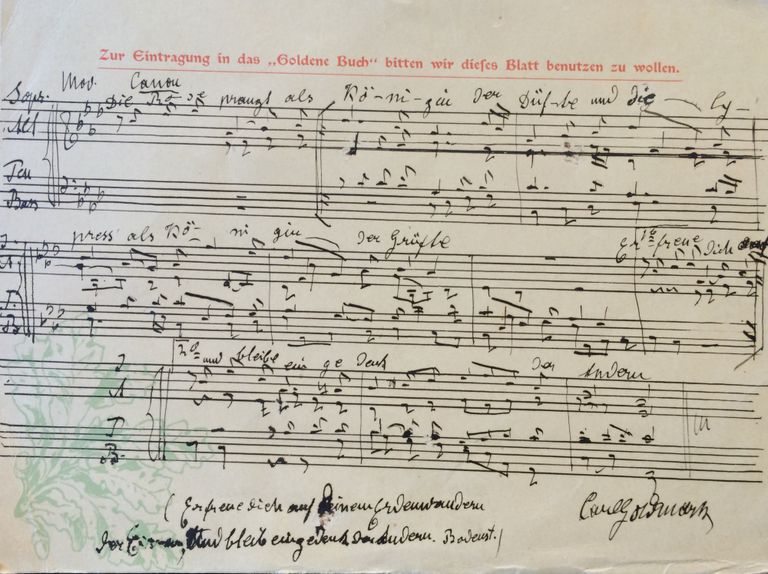 Zur Eintragung in das „Goldene Buch" bitten wir dieses Blatt benutzen zu wollen.
Mod. Canon
Sopr. Die Rose prangt als Kö-ni-gin der Düf-te und die Cy-
Alt
Ten
Bass
press als Kö- ni gin der Grüfte Erfreue dich
A
T
B
2o und bleibe ein ge denk der Andern
A
T
B.
(Erfreue dich auf deinem Erdenwandern Carl Goldmark
der Einen, Und bleib eingedenk der Andern. Bodenst.)